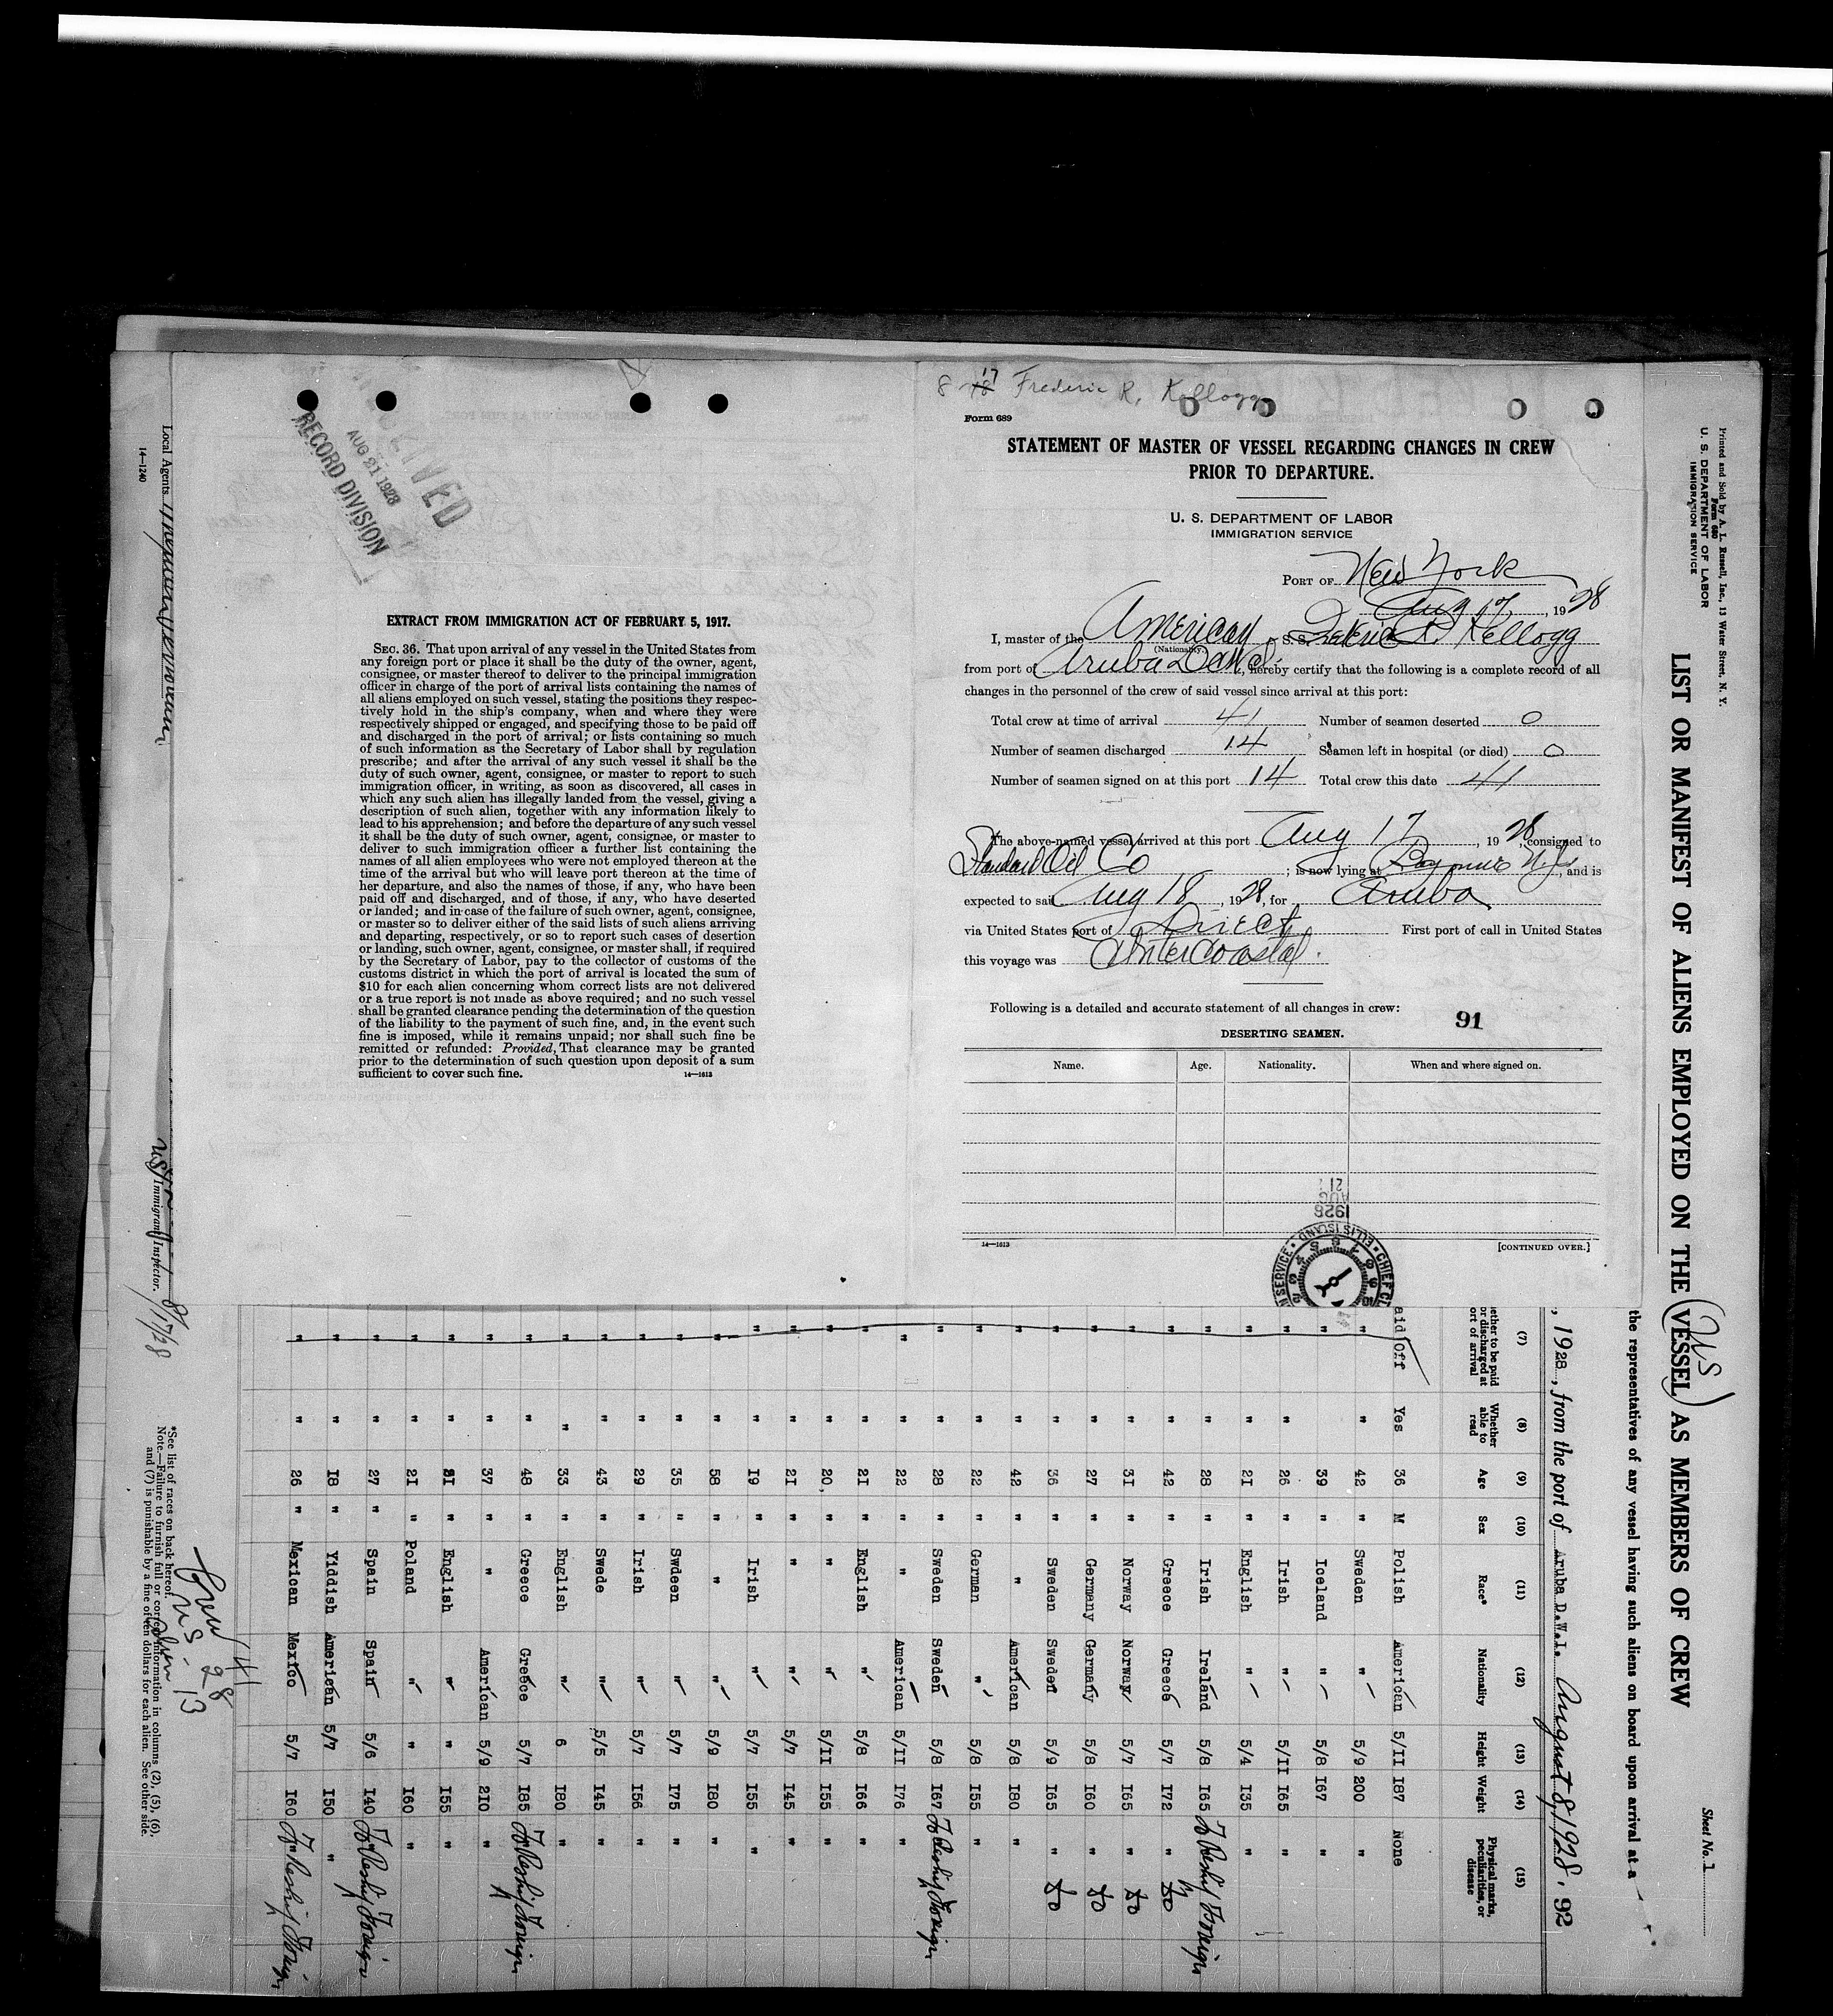 8 17 Frederic R. Kellogg
Form 689
STATEMENT OF MASTER OF VESSEL REGARDING CHANGES IN CREW
PRIOR TO DEPARTURE.
U. S. DEPARTMENT OF LABOR
IMMIGRATION SERVICE
PORT OF New York
Aug 17, 1928
I, master of the American S. S. Frederic R. Kellogg
(Nationality.)
from port of Aruba D W I, hereby certify that the following is a complete record of all
changes in the personnel of the crew of said vessel since arrival at this port:
Total crew at time of arrival 41 Number of seamen deserted 0
Number of seamen discharged 14 Seamen left in hospital (or died) 0
Number of seamen signed on at this port 14 Total crew this date 41
The above-named vessel arrived at this port Aug 17, 1928, consigned to
Standard Oil Co ; is now lying at Bayonne N.J., and is
expected to sail Aug 18, 1928, for Aruba
via United States port of Direct First port of call in United States
this voyage was Intercoastal.
Following is a detailed and accurate statement of all changes in crew:
91
DESERTING SEAMEN.
Name. Age. Nationality. When and where signed on.
14—1613 [CONTINUED OVER.]
RECEIVED
AUG 21 1928
RECORD DIVISION
EXTRACT FROM IMMIGRATION ACT OF FEBRUARY 5, 1917.
SEC. 36. That upon arrival of any vessel in the United States from
any foreign port or place it shall be the duty of the owner, agent,
consignee, or master thereof to deliver to the principal immigration
officer in charge of the port of arrival lists containing the names of
all aliens employed on such vessel, stating the positions they respec-
tively hold in the ship's company, when and where they were
respectively shipped or engaged, and specifying those to be paid off
and discharged in the port of arrival; or lists containing so much
of such information as the Secretary of Labor shall by regulation
prescribe; and after the arrival of any such vessel it shall be the
duty of such owner, agent, consignee, or master to report to such
immigration officer, in writing, as soon as discovered, all cases in
which any such alien has illegally landed from the vessel, giving a
description of such alien, together with any information likely to
lead to his apprehension; and before the departure of any such vessel
it shall be the duty of such owner, agent, consignee, or master to
deliver to such immigration officer a further list containing the
names of all alien employees who were not employed thereon at the
time of the arrival but who will leave port thereon at the time of
her departure, and also the names of those, if any, who have been
paid off and discharged, and of those, if any, who have deserted
or landed; and in case of the failure of such owner, agent, consignee,
or master so to deliver either of the said lists of such aliens arriving
and departing, respectively, or so to report such cases of desertion
or landing, such owner, agent, consignee, or master shall, if required
by the Secretary of Labor, pay to the collector of customs of the
customs district in which the port of arrival is located the sum of
$10 for each alien concerning whom correct lists are not delivered
or a true report is not made as above required; and no such vessel
shall be granted clearance pending the determination of the question
of the liability to the payment of such fine, and, in the event such
fine is imposed, while it remains unpaid; nor shall such fine be
remitted or refunded: Provided, That clearance may be granted
prior to the determination of such question upon deposit of a sum
sufficient to cover such fine. 14—1613
1928
AUG
21
ELLIS ISLAND
Printed and Sold by A. L. Russell, Inc., 13 Water Street, N. Y.
Form 680
U. S. DEPARTMENT OF LABOR
IMMIGRATION SERVICE
Sheet No. 1
US
LIST OR MANIFEST OF ALIENS EMPLOYED ON THE VESSEL AS MEMBERS OF CREW
the representatives of any vessel having such aliens on board upon arrival at a
, 1928, from the port of Aruba D.W.I. August 8, 1928. 92
(7) (8) (9) (10) (11) (12) (13) (14) (15)
ether to be paid or discharged at ort of arrival Whether able to read Age Sex Race* Nationality Height Weight Physical marks, peculiarities, or disease
aid Off Yes 36 M Polish American 5/II I87 None
" " 42 " Sweden " 5/9 200 "
" 39 " Iceland " 5/8 I67 "
" " 26 " Irish " 5/II I65
" " 2I " English " 5/4 I35 "
" " 28 " Irish Ireland 5/8 I65 To Reship Foreign
" " 42 " Greece Greece 5/7 I72 "
" " 3I " Norway Norway 5/7 I65 "
" " 27 " Germany Germany 5/8 I60 "
" " 36 " Sweden Sweden 5/9 I65 "
" " 42 " " American 5/8 I80 "
" " 22 " German " 5/8 I55 "
" " 28 " Sweden Sweden 5/8 I67 To Reship Foreign
" " 22 " " American 5/II I76 "
" " 2I " English " 5/8 I66 "
" " 20, " " " 5/II I55 "
" " 2I " " " 5/7 I45 "
" " I9 " Irish " 5/7 I55 "
" " 58 " " " 5/9 I80 "
" " 35 " Swdeen " 5/7 I75 "
" " 29 " Irish " 5/7 I56 "
" " 43 " Swede " 5/5 I45 "
" " 33 " English " 6 I80 "
" " 48 " Greece Greece 5/7 I85 To Reship Foreign
" " 37 " " American 5/9 2I0 "
" " 2I " English " " I55 "
" " 2I " Poland " " I60 "
" " 27 " Spain Spain 5/6 I40 To Reship Foreign
" " I8 " Yiddish American 5/7 I50 "
" " 26 " Mexican Mexico 5/7 I60 To Reship Foreign
Crew 41
US 28
Alien 13
*See list of races on back hereof.
Note.—Failure to furnish full or correct information in columns (2), (5), (6),
and (7) is punishable by a fine of ten dollars for each alien. See other side.
Local Agents
Immigrant Inspector.
8/17/28
14—1240